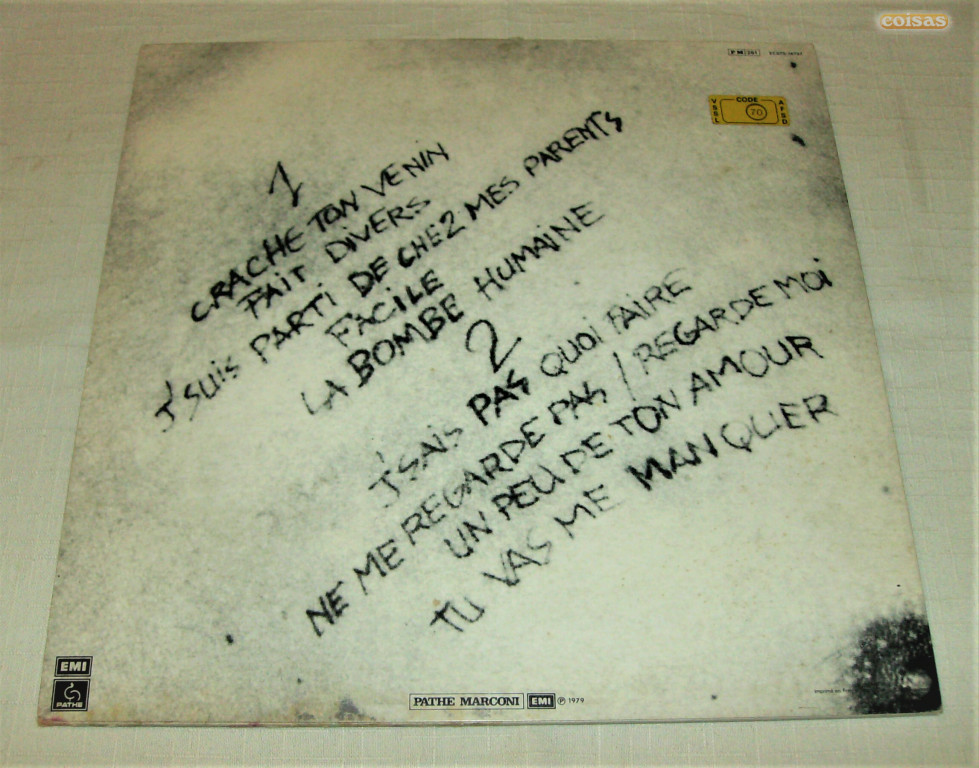 coisas
PM 261
CODE
VSSL
70
AFBD
1
CRACHE TON VENIN
FAIT DIVERS
J'SUIS PARTI DE CHEZ MES PARENTS
FACILE
LA BOMBE HUMAINE
2
J'SAIS PAS QUOI FAIRE
NE ME REGARDE PAS / REGARDE MOI
UN PEU DE TON AMOUR
TU VAS ME MANQUER
EMI
PATHE
PATHE MARCONI EMI ℗ 1979